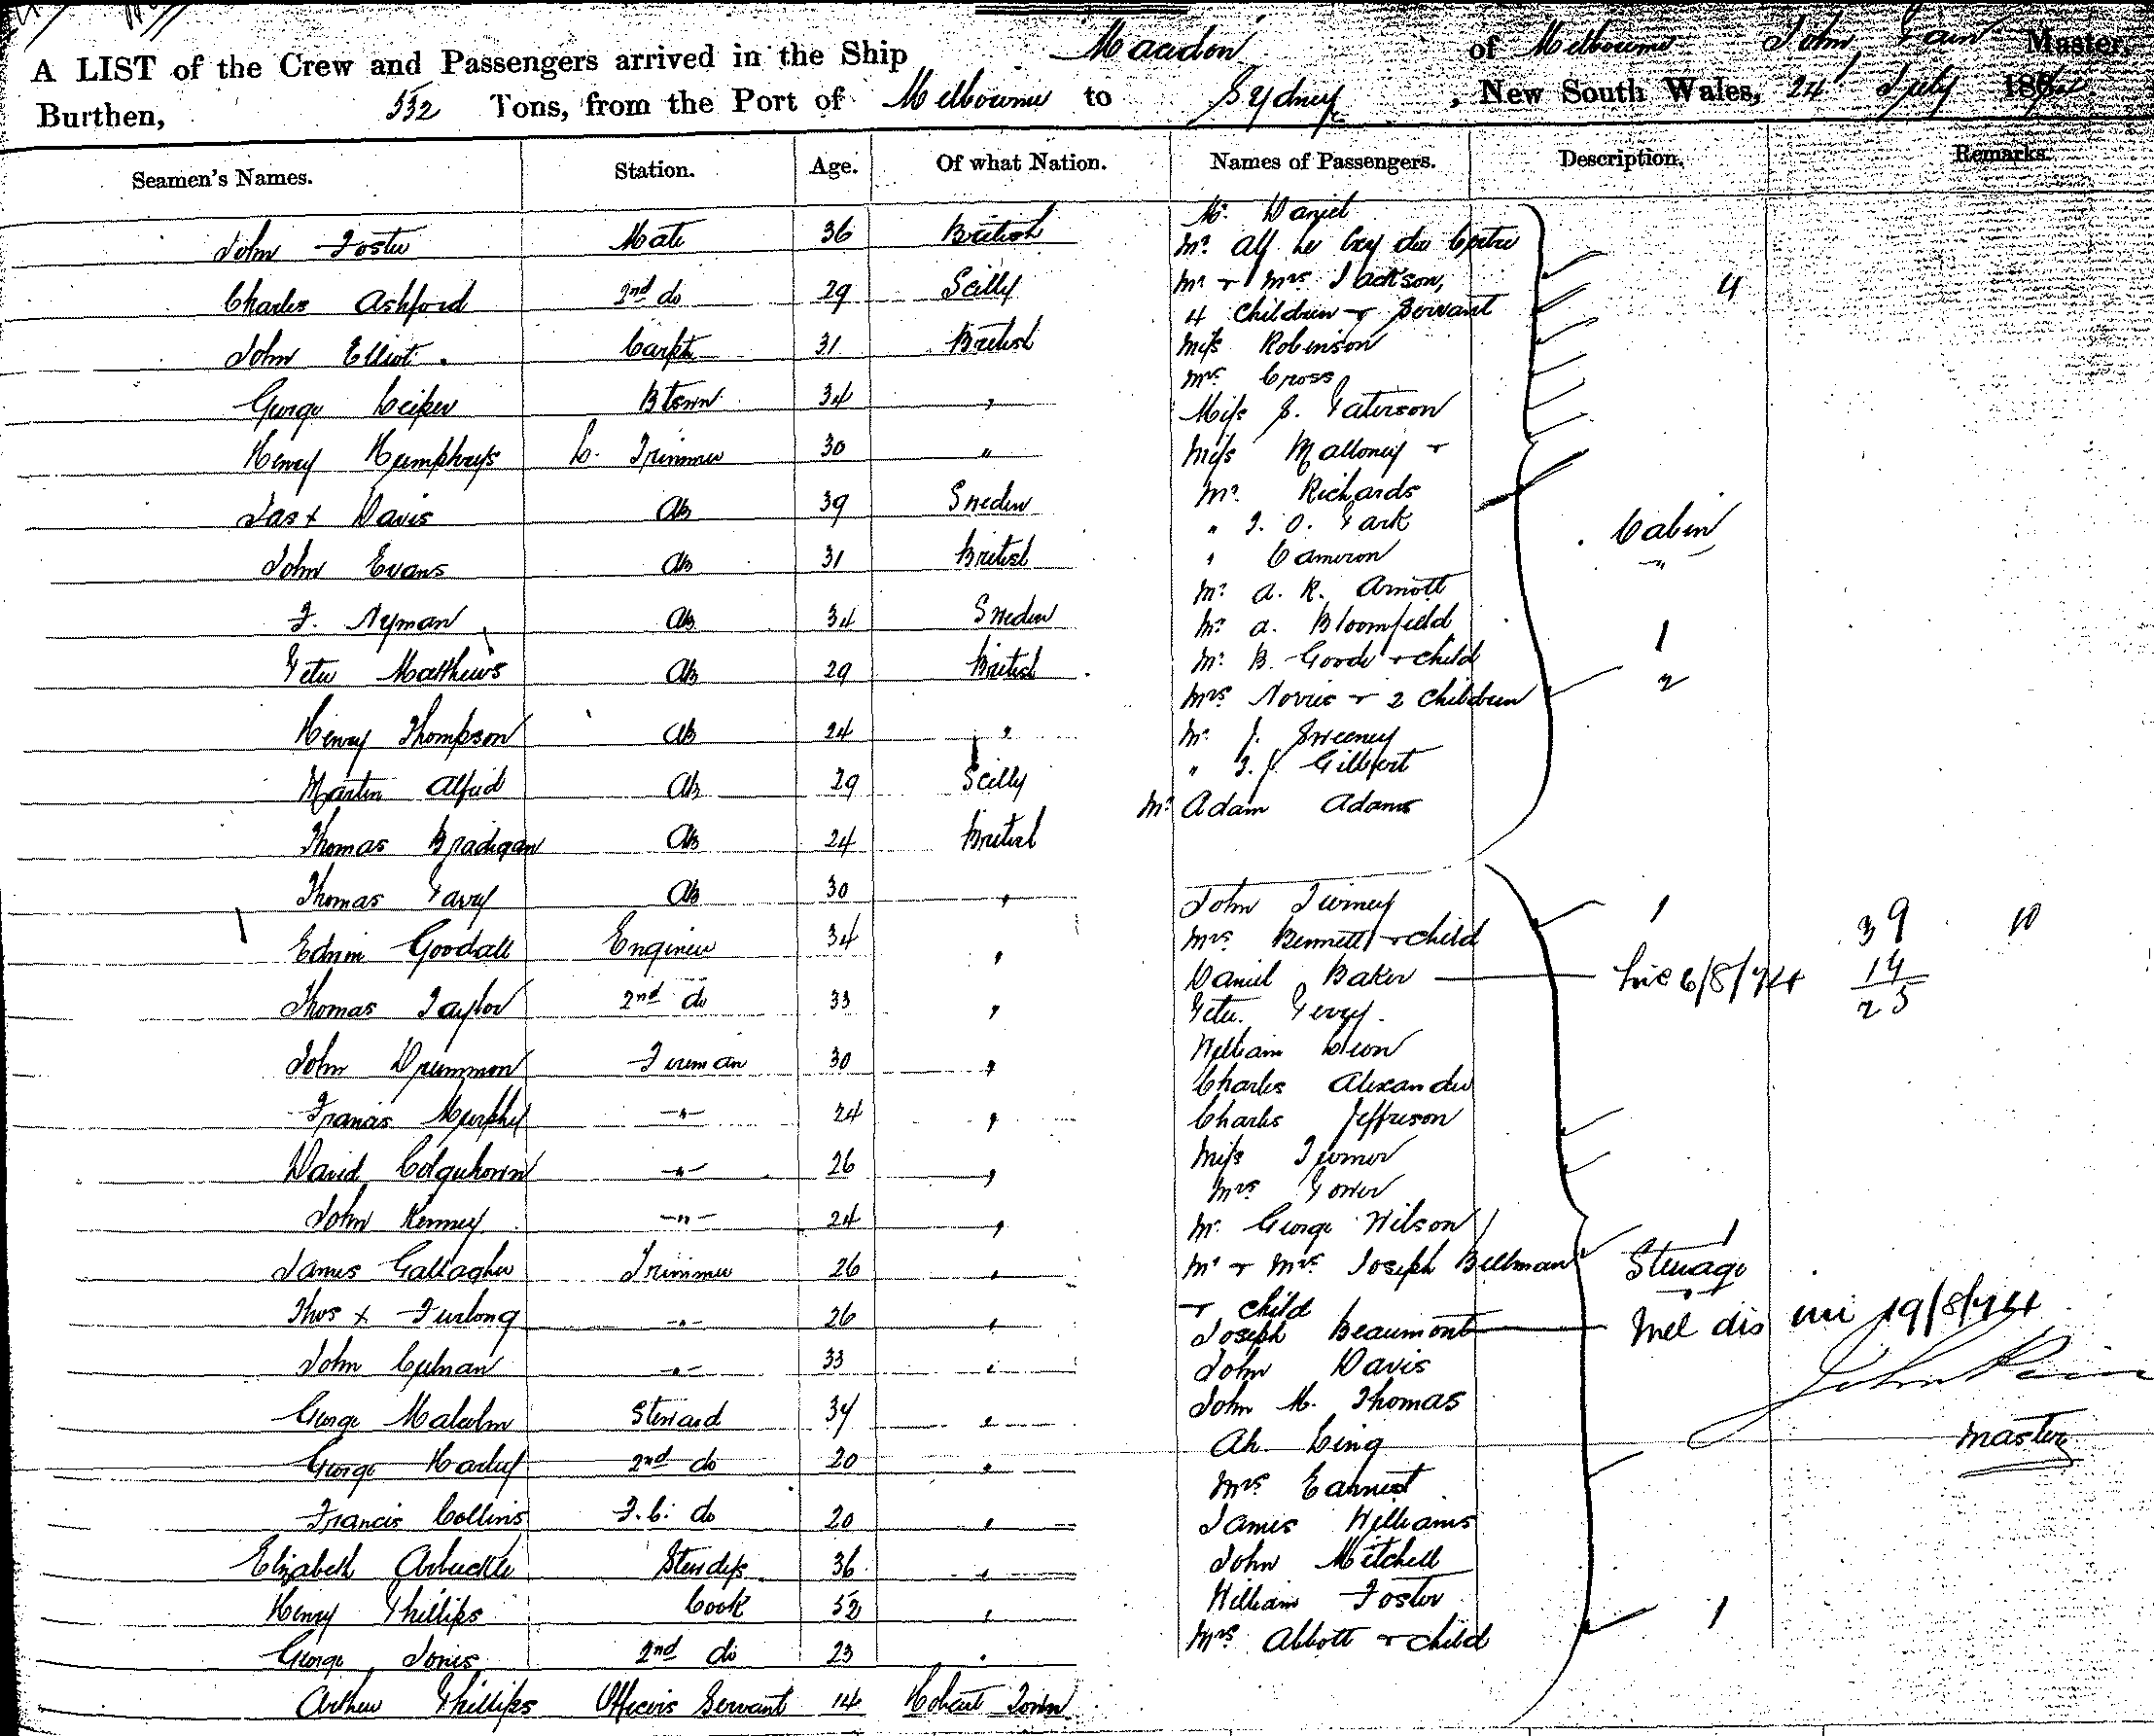 A LIST of the Crew and Passengers arrived in the Ship Macedon of Melbourne John Pain Master,
Burthen, 552 Tons, from the Port of Melbourne to Sydney, New South Wales, 24 July 187
Seamen's Names. Station. Age. Of what Nation. Names of Passengers. Description. Remarks.
John Foster Mate 36 British
Charles Ashford 2nd do 29 Scilly
John Elliot Carptr 31 British
George 34 "
Henry Humphreys L. Trimmer 30 "
Jas x Davis AB 39 Sweden
John Evans AB 31 British
F. Nyman AB 34 Sweden
Peter Matthews AB 29 British
Henry Thompson AB 24 "
Martin Alfred AB 29 Scilly
Thomas Bradigan AB 24 British
Thomas Parry AB 30 "
Edwin Goodall Engineer 34 "
Thomas Taylor 2nd do 33 "
John Drummon Fireman 30 "
Francis Murphy -"- 24 "
David Colquhoun -"- 26 "
John Kenney -"- 24 "
James Gallagher Trimmer 26 "
Thos x Furlong -"- 26 "
John Culnan -"- 33 "
George Malcolm Steward 34 "
George Harley 2nd do 20 "
Francis Collins F.C. do 20 "
Elizabeth Arbuckle Stewdss 36 "
Henry Phillips Cook 52 "
George Jones 2nd do 23 "
Arthur Phillips Officers Servant 14 Hobart Town
Mr. Daniel
Mr. Alf
Mr + Mrs Jackson,
4 Children + Servant 4
Miss Robinson
Mrs Cross
Miss J. Paterson
Miss Malloney +
Mr. Richards
" J. O. Park Cabin
" Cameron "
Mr. A. R. Arnott
Mr A. Bloomfield 1
Mr. B. Goode + child
Mrs Norris + 2 Children 2
Mr. J. Sweeney
" T. J. Gilbert
Mr Adam Adams
John Tierney 1 39 10
Mrs Bennett + child 14
Daniel Baker 6/8/74 25
Peter Perry
William
Charles Alexander
Charles Jefferson
Miss Turner
Mrs Power
Mr. George Wilson 1
Mr + Mrs Joseph Bellman Steerage
+ child "
Joseph Beaumont Mel dis 19/8/74
John Davis John Pain
John M. Thomas
Ah Ling Master
Mrs Earnest
James Williams
John Mitchell
William Foster
Mrs Abbott + child 1